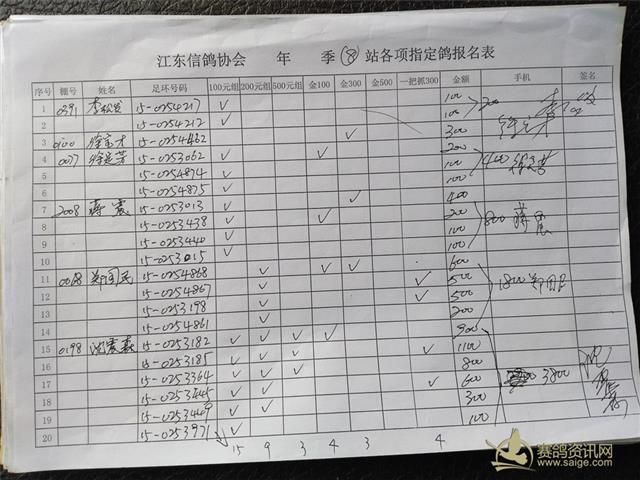 江东信鸽协会 年 季(8)站各项指定鸽报名表
序号 棚号 姓名 足环号码 100元组 200元组 500元组 金100 金300 金500 一把抓300 金额 手机 签名
1 0391 15-0254217 ✓ 100
2 15-0254212 ✓ 100
3 0100 15-0254462 ✓ 300
4 0077 15-0253062 ✓ ✓ 200
5 15-0254874 ✓ 100
6 15-0254875 ✓ 100 400
7 2008 蒋震 15-0253013 ✓ ✓ 400
8 15-0253438 ✓ ✓ 200 800 蒋震
9 15-0253440 ✓ 100
10 15-0253015 ✓ 100
11 0068 郑国民 15-0254868 ✓ ✓ ✓ 600
12 15-0254867 ✓ ✓ 500 1800 郑国民
13 15-0253198 ✓ ✓ 500
14 15-0254861 ✓ 200
15 0198 15-0253182 ✓ ✓ ✓ ✓ 900
16 15-0253185 ✓ ✓ ✓ ✓ 1100
17 15-0253364 ✓ ✓ ✓ 800
18 ✓ ✓ ✓ 600 3800
19 15-0253449 ✓ ✓ 300
20 15-0253971 ✓ 100
15 9 3 4 3 4
赛鸽资讯网
www.saige.com